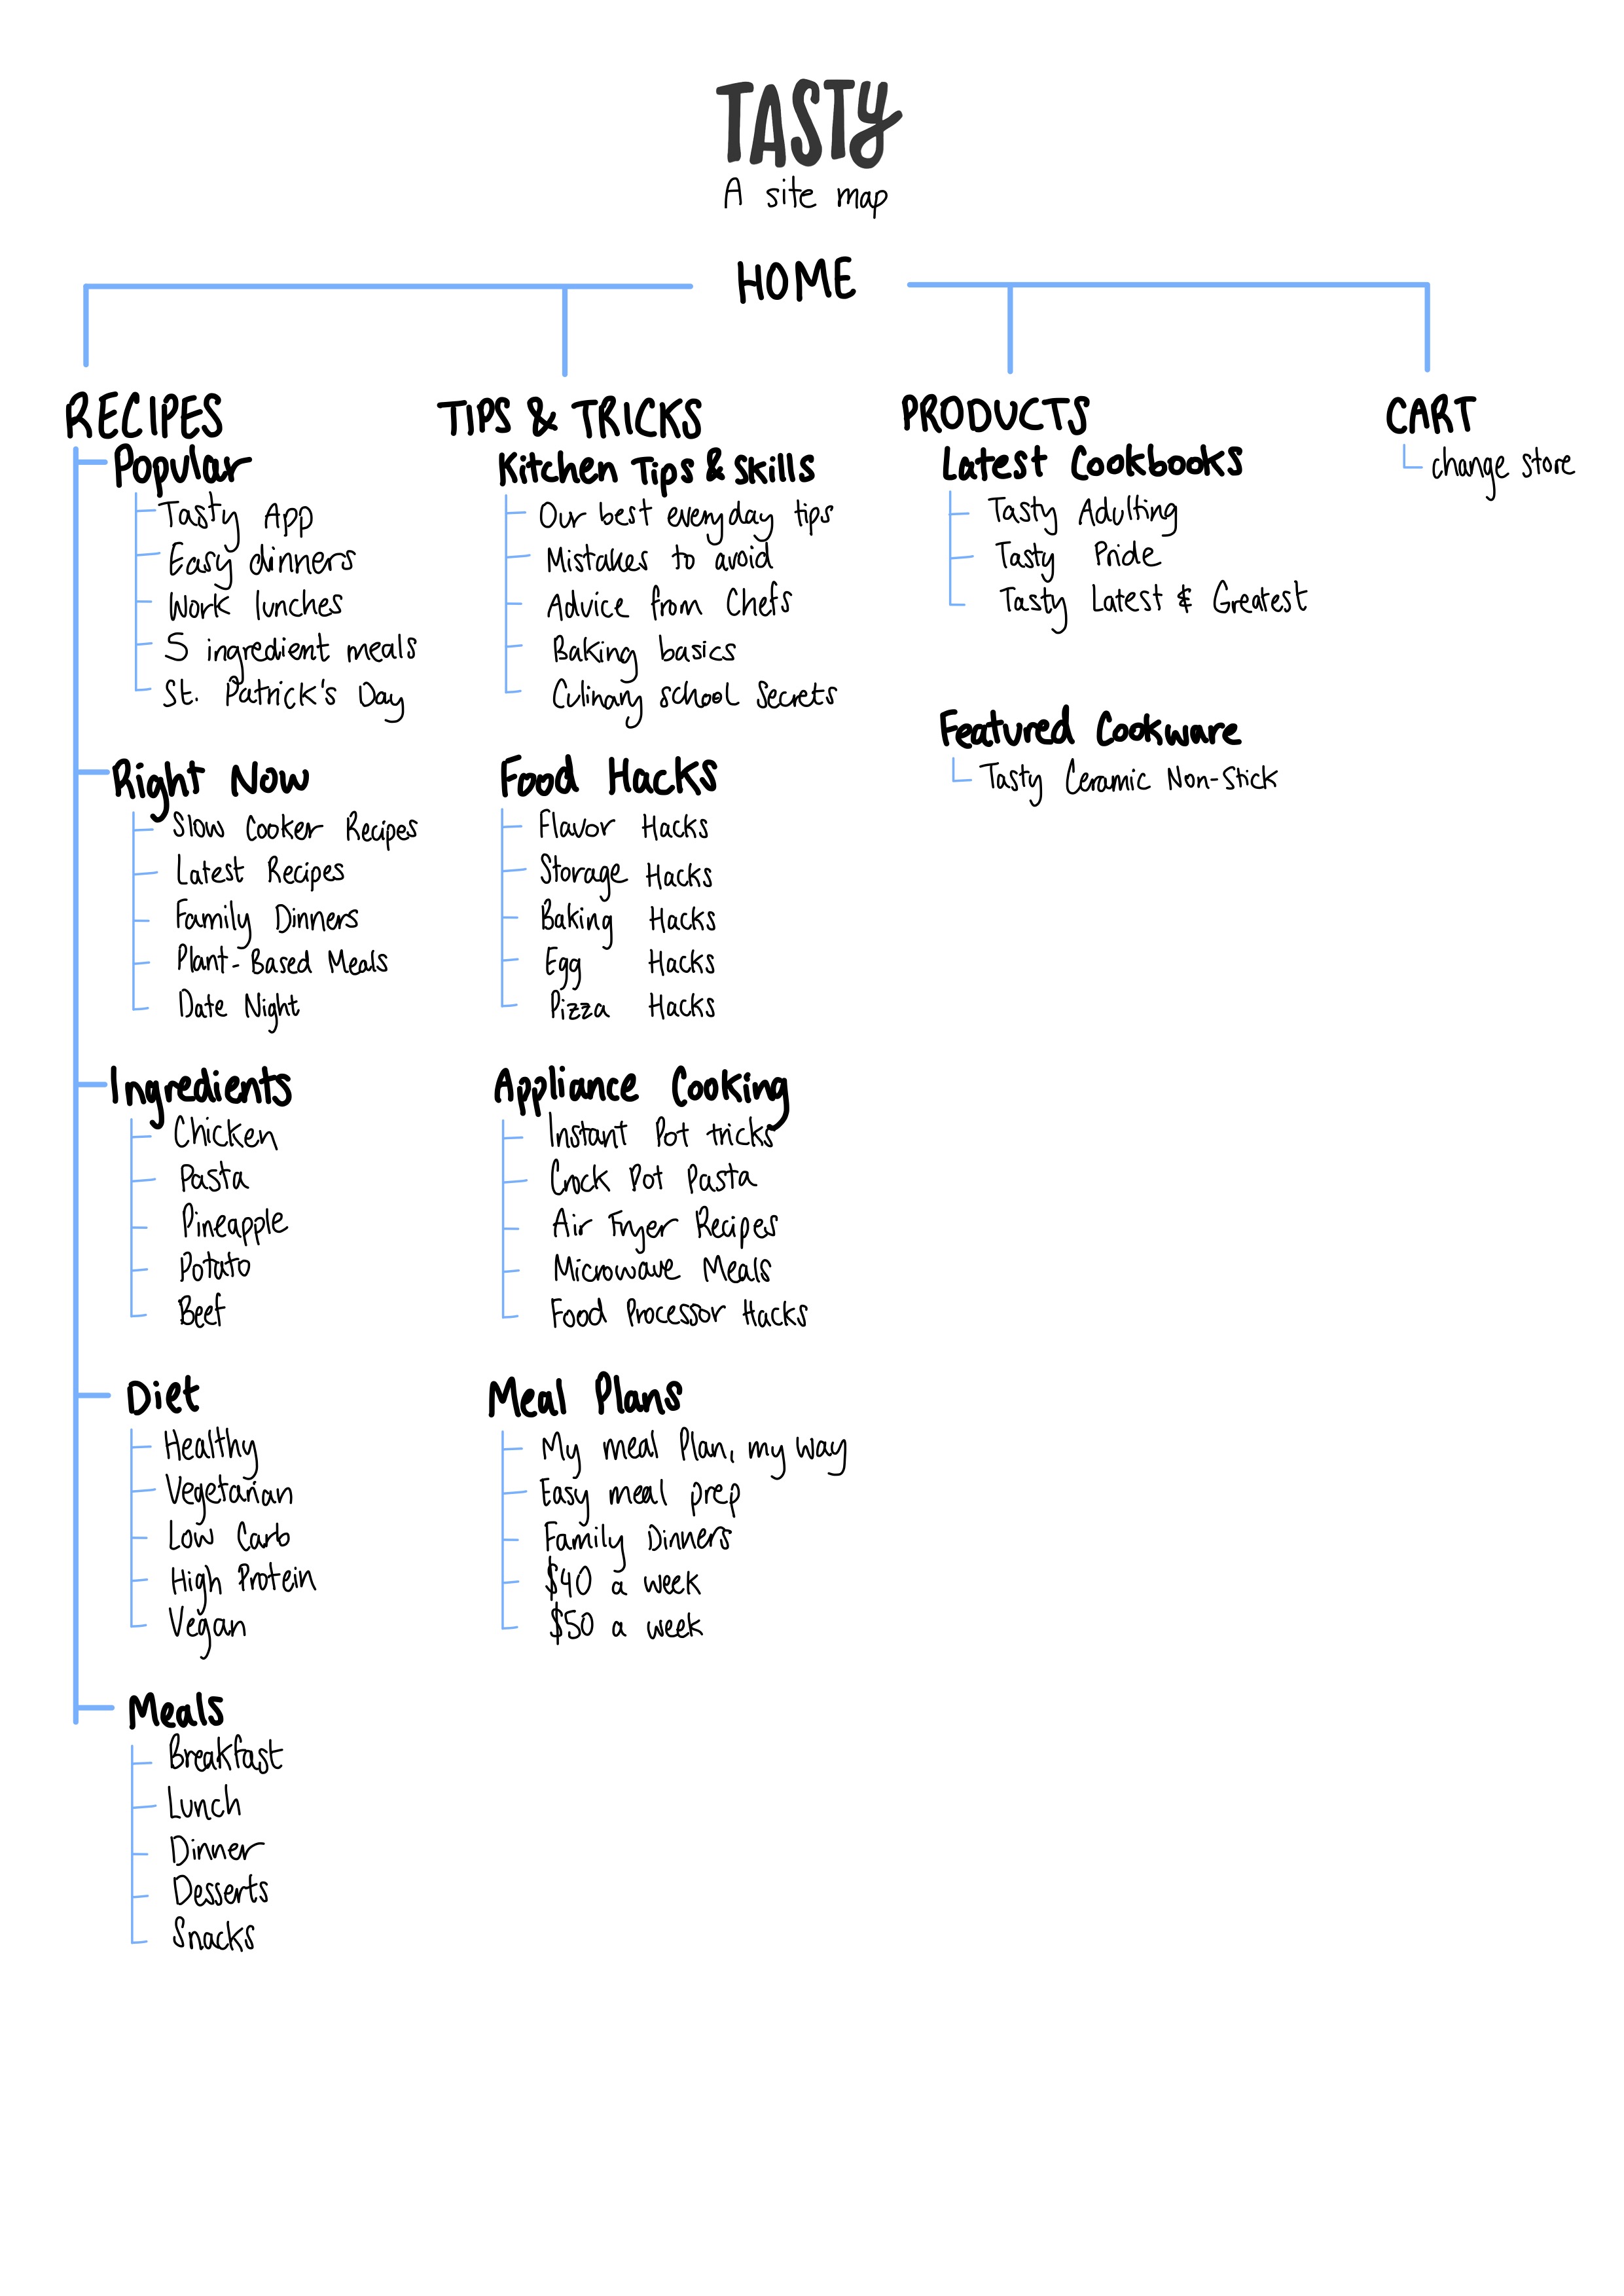 TASTY
A site map
HOME
RECIPES
Popular
Tasty App
Easy dinners
Work lunches
5 ingredient meals
St. Patrick's Day
Right Now
Slow Cooker Recipes
Latest Recipes
Family Dinners
Plant-Based Meals
Date Night
Ingredients
Chicken
Pasta
Pineapple
Potato
Beef
Diet
Healthy
Vegetarian
Low Carb
High Protein
Vegan
Meals
Breakfast
Lunch
Dinner
Desserts
Snacks
TIPS & TRICKS
Kitchen Tips & Skills
Our best everyday tips
Mistakes to avoid
Advice from Chefs
Baking basics
Culinary school Secrets
Food Hacks
Flavor Hacks
Storage Hacks
Baking Hacks
Egg Hacks
Pizza Hacks
Appliance Cooking
Instant Pot tricks
Crock Pot Pasta
Air Fryer Recipes
Microwave Meals
Food Processor Hacks
Meal Plans
My meal Plan, my way
Easy meal prep
Family Dinners
$40 a week
$50 a week
PRODUCTS
Latest Cookbooks
Tasty Adulting
Tasty Pride
Tasty Latest & Greatest
Featured Cookware
Tasty Ceramic Non-Stick
CART
change store